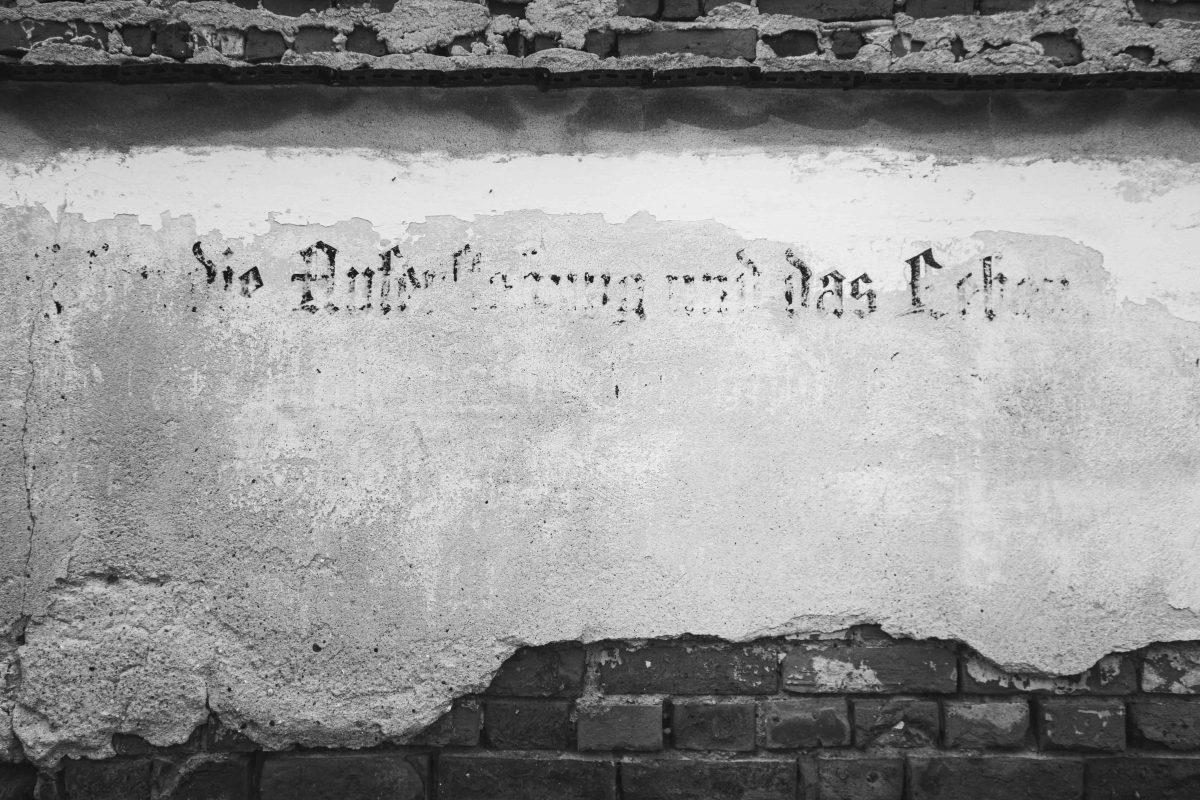 die Auferstehung und das Leben